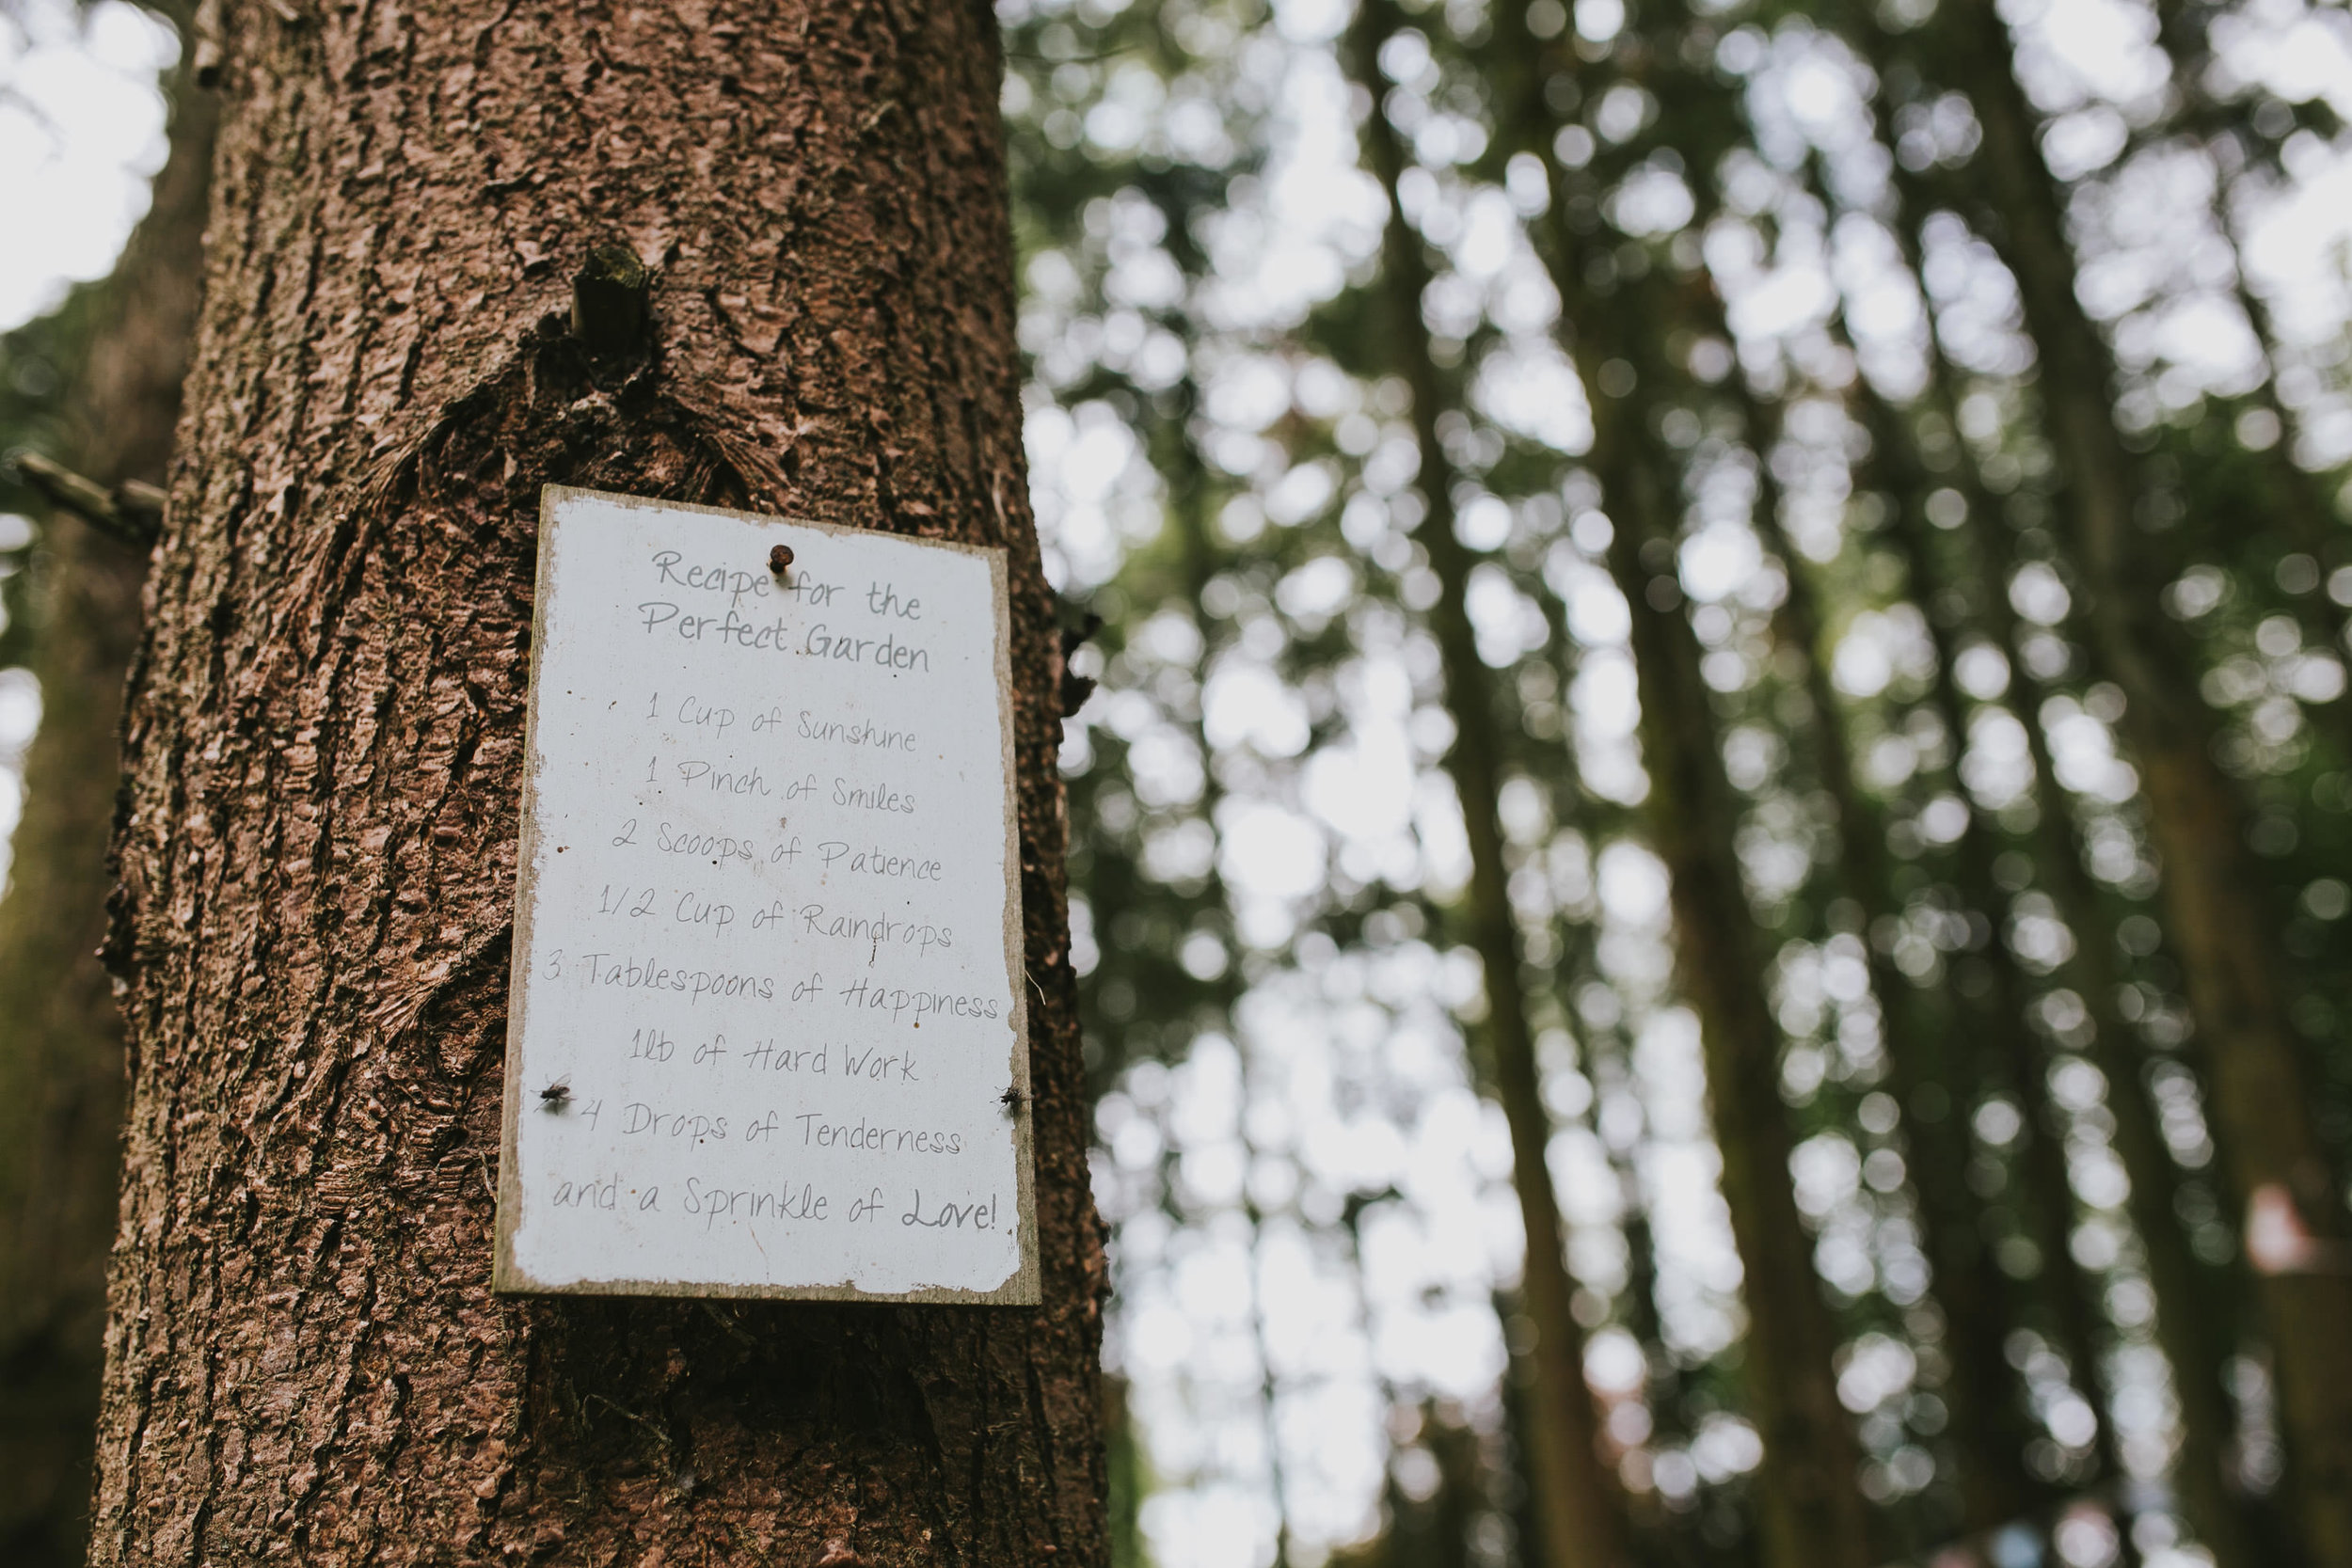 Recipe for the
Perfect Garden
1 Cup of Sunshine
1 Pinch of Smiles
2 Scoops of Patience
1/2 Cup of Raindrops
3 Tablespoons of Happiness
1lb of Hard Work
4 Drops of Tenderness
and a Sprinkle of Love!